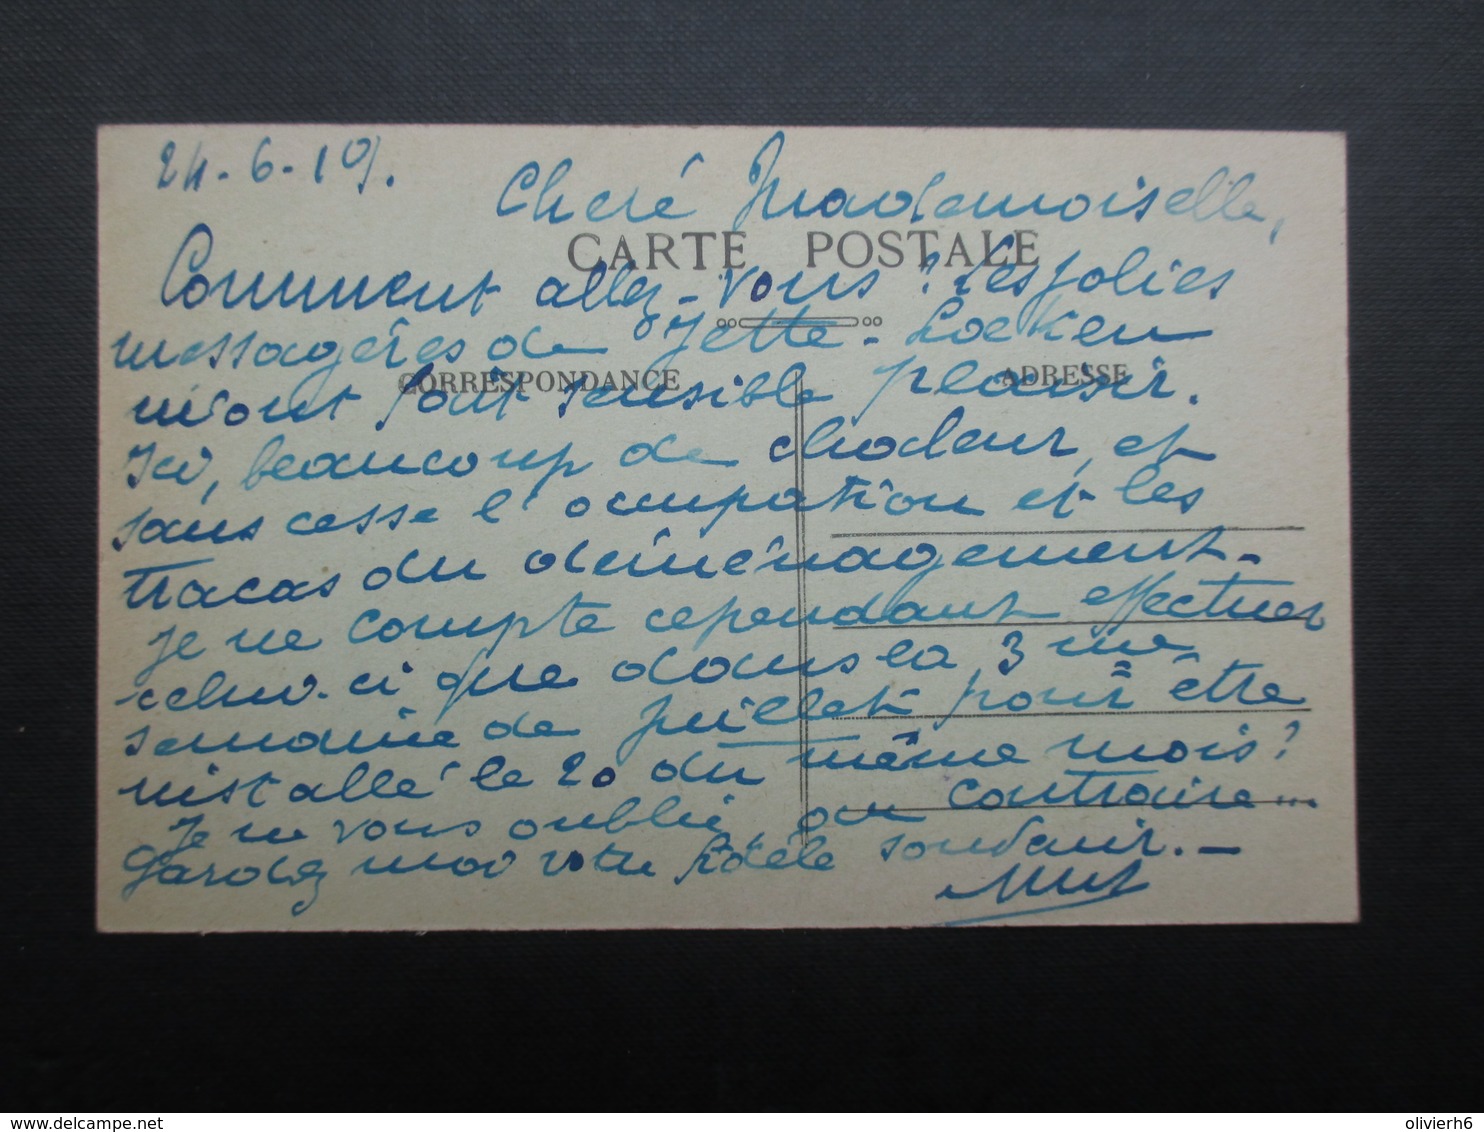 24-6-19.
Cheré Mademoiselle,
CARTE POSTALE
Comment allez-vous? Les jolies
messagères de Jette-Laeken
CORRESPONDANCE ADRESSE
m'ont fait sensible plaisir.
Ici, beaucoup de chaleur, et
sans cesse l'occupation et les
tracas du déménagement.
Je ne compte cependant effectuer
celui-ci que dans la 3me
semaine de juillet pour être
installé le 20 du même mois?
Je ne vous oublie, au contraire...
Gardez moi votre fidèle souvenir.-
delcampe.net
olivierh6